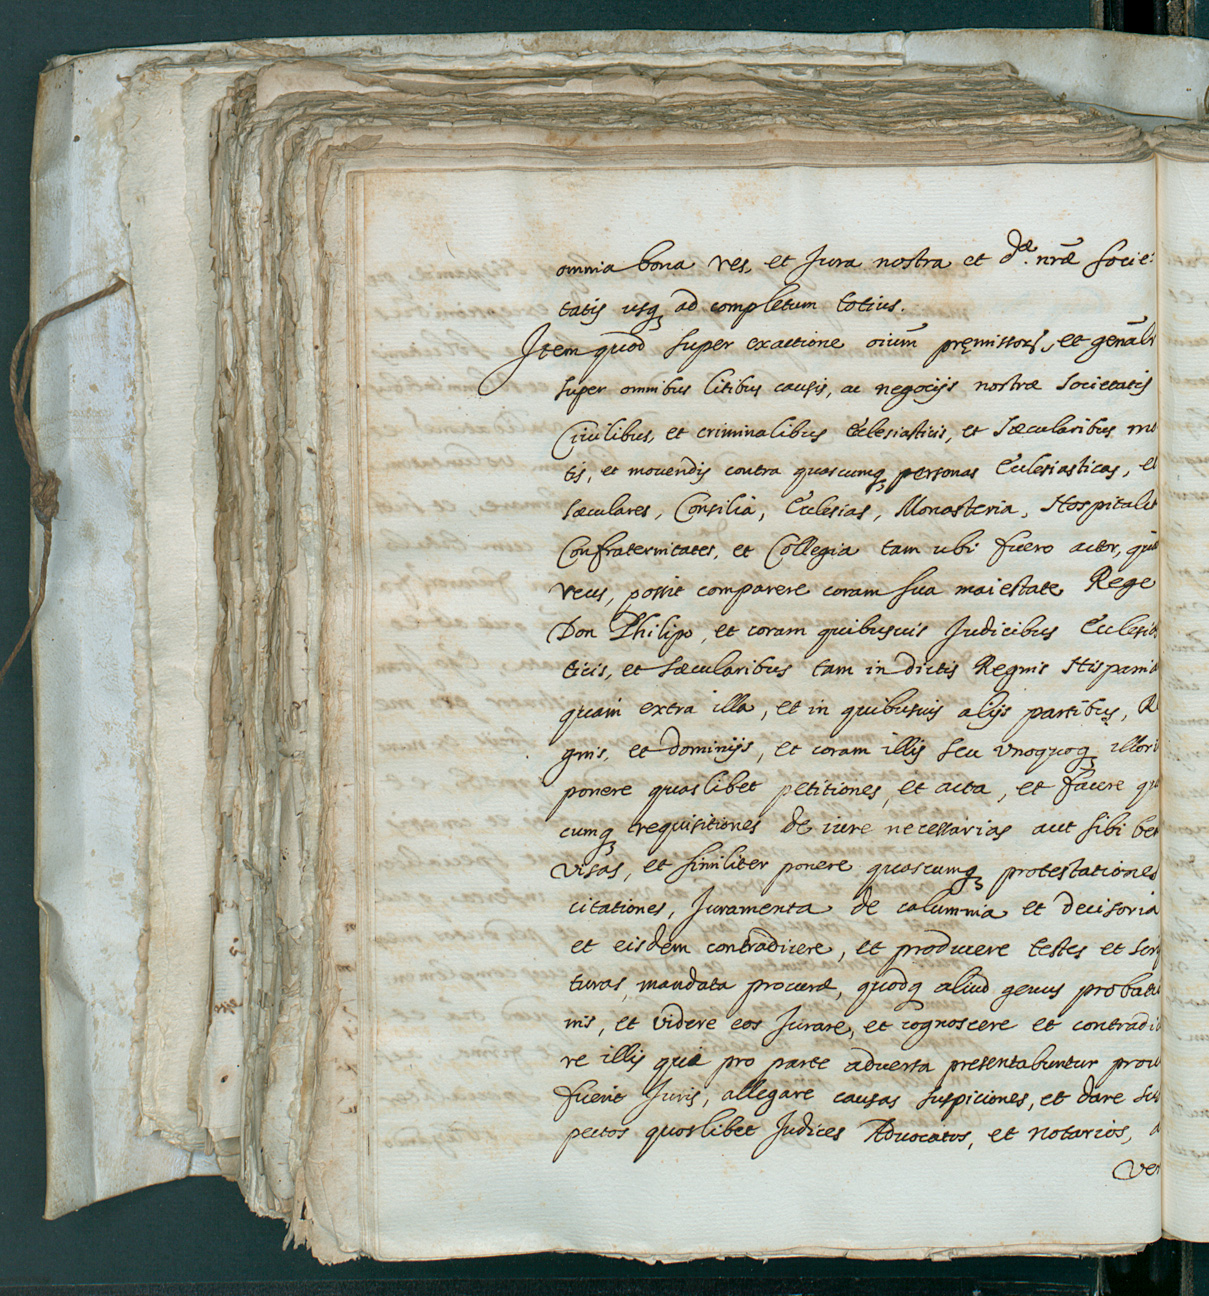 omnia bona res, et Jura nostra et dæ. nræ socie:
tatis usq ad completum totius.
Item quod super exactione oium pręmissorũ, et genãlr
super omnibus litibus causis, ac negocijs nostræ societatis
Ciuilibus, et criminalibus Ecclesiasticis, et Sæcularibus mo
tis, et mouendis contra quascumq personas Ecclesiasticas, et
sæculares, Consilia, Ecclesias, Monasteria, Hospitalia
Confraternitates, et Collegia tam ubi fuero actor, quã
reus, possit comparere coram sua maiestate Rege
Don Philipo, et coram quibusuis Judicibus Ecclesias
ticis, et Sæcularibus tam in dictis Regnis Hispania
quam extra illa, et in quibusuis alijs partibus, Re
gnis, et dominijs, et coram illis seu unoquoq illorũ
ponere quaslibet petitiones, et acta, et facere quas
cumq requisitiones de iure necessarias aut sibi ben
visas, et similiter ponere quascumq protestationes
citationes, Juramenta de calumnia et decisoria
et eisdem contradicere, et producere testes et scrip
turas, mandata procuræ, quodq aliud genus probatio
nis, et videre eos Jurare, et cognoscere et contradice
re illis quæ pro parte aduersa presentabuntur prout
fuerit Juris, allegare causas suspiciones, et dare sus
pectos quoslibet Judices Aduocatos, et notarios, a
ver